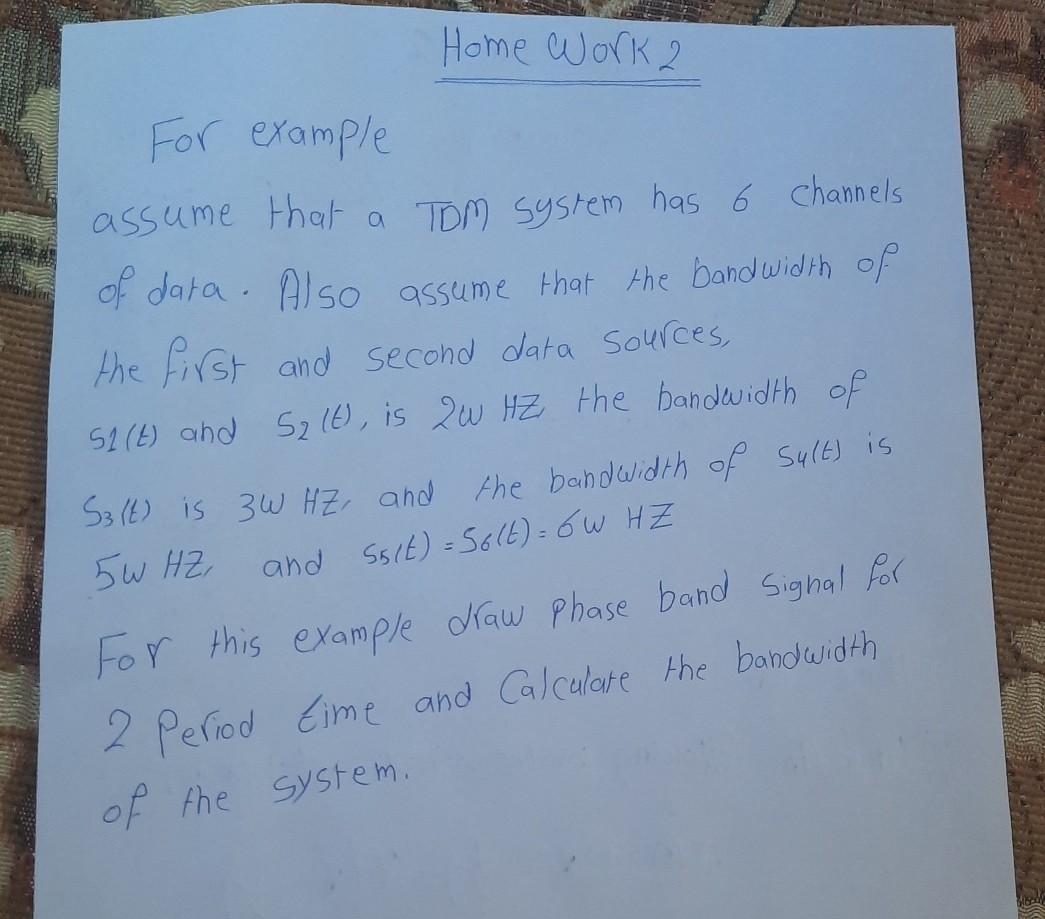 Home Work 2
For example
assume that a TDM system has 6 channels
of data. Also assume that the bandwidth of
the first and second data sources,
S1(t) and S2(t), is 2W HZ, the bandwidth of
S3(t) is 3W HZ, and the bandwidth of S4(t) is
5W HZ, and S5(t) = S6(t) = 6W HZ
For this example draw phase band signal for
2 Period time and Calculate the bandwidth
of the system.